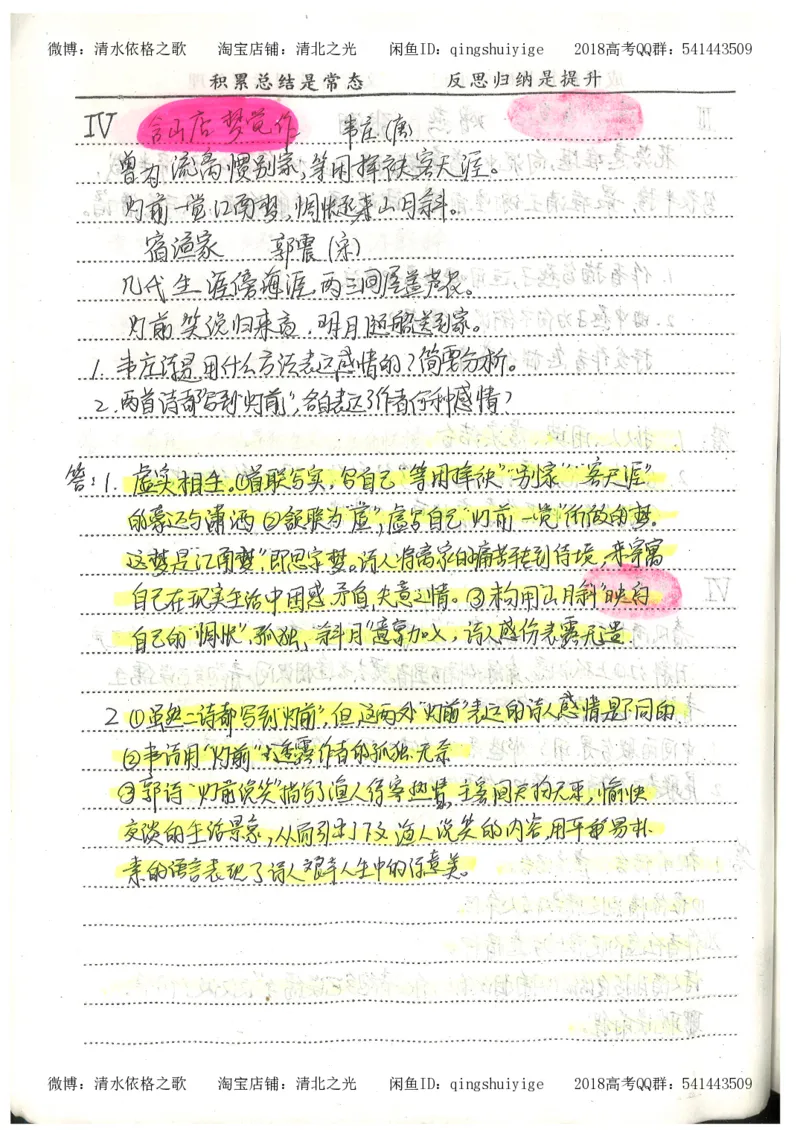 微博：清水依格之歌 淘宝店铺：清北之光 闲鱼ID：qingshuiyige 2018高考QQ群：541443509
积累总结是常态 反思归纳是提升
IV 含山店梦觉作 韦庄(唐)
曾为流离惯别家，等闲挥袂客天涯。
灯前一觉江南梦，惆怅起来山月斜。
宿渔家 郭震(宋)
几代生涯傍海涯，两三间屋盖芦花。
灯前笑说归来夜，明月随船送到家。
1. 韦庄诗是用什么方法表达感情的？简要分析。
2. 两首诗都写到"灯前"，各自表达了作者何种感情？
答：1. 虚实相生。①首联写实，写自己"等闲挥袂""别家""客天涯"
的豪迈与潇洒 ②颔联为"虚"，虚写自己"灯前一觉"所做的梦。
这梦是江南梦"，即思家梦。诗人将离家的痛苦转到侍境，来寄寓
自己在现实生活中困惑、矛盾，失意之情。③末句用"山月斜"映白
自己的"惆怅"、孤独，"斜月"意象加入，诗人感伤表露无遗。
2 ①虽然二诗都写到"灯前"，但这两外"灯前"表达的诗人感情是不同的
②韦诗用"灯前"透露作者的孤独、无奈
③郭诗"灯前说笑"描写了渔人待客热情，主客间天的无束，愉快
交谈的生活景象，从而引出了下文渔人说笑的内容，用平和易朴
素的语言表现了诗人艰辛人生中的诗意美。
微博：清水依格之歌 淘宝店铺：清北之光 闲鱼ID：qingshuiyige 2018高考QQ群：541443509